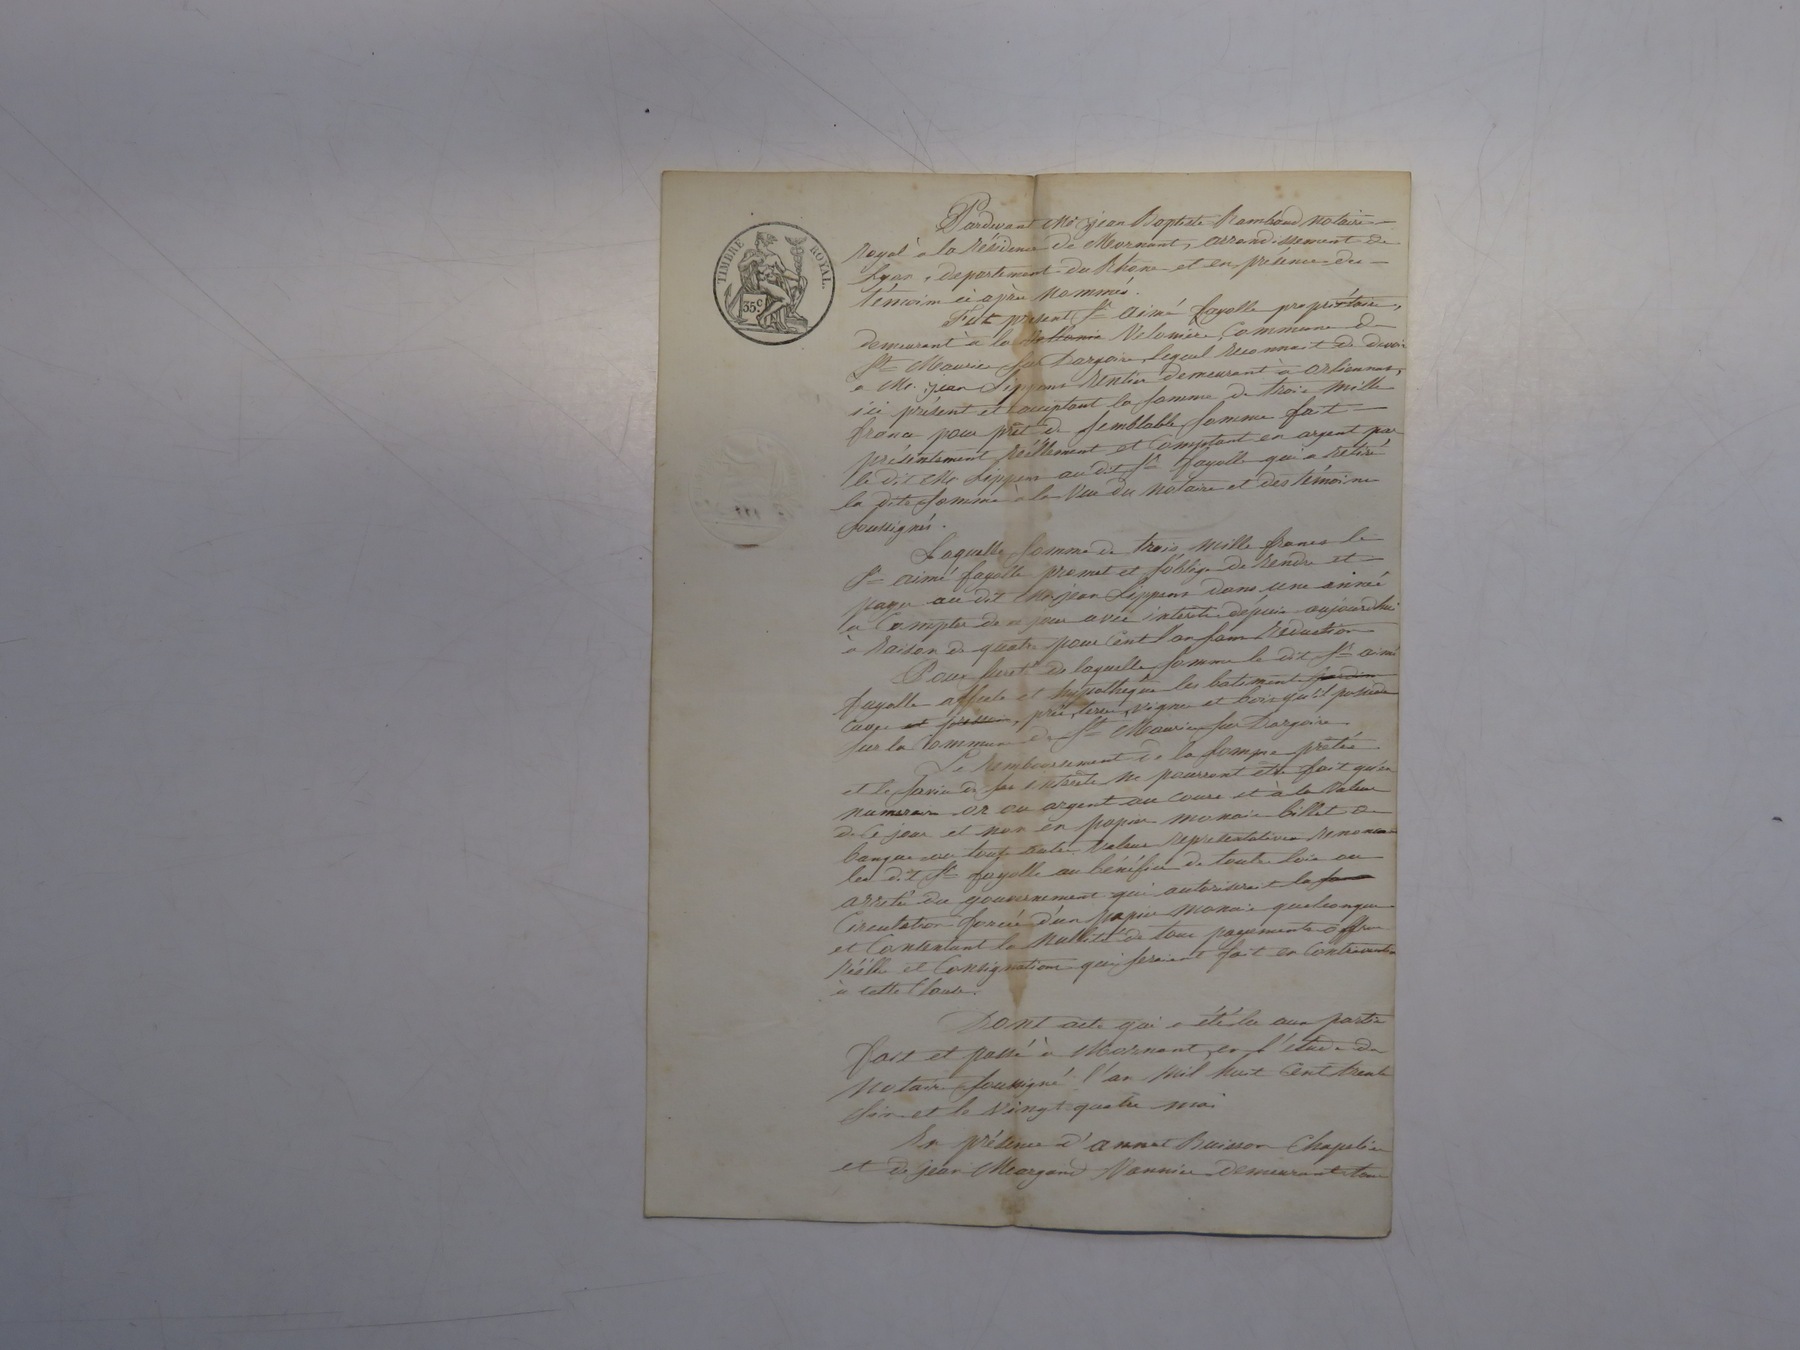 TIMBRE ROYAL.
35 c.
Pardevant Me jean Baptiste Rambaud notaire
Royal à la résidence de Mornant, arrondissement de
Lyon, departement du Rhône et en présence des
témoins ci après nommés.
Fut présent Sr aimé fayolle propriétaire,
demeurant a la commune de
St Maurice sur Dargoire, lequel reconnait de devoir
a Mr. jean Lippens Rentier demeurant à orliennas,
ici présent et acceptant la somme de trois mille
francs pour prêt de semblable somme fait
présentement réellement et comptant en argent par
le dit Mr Lippens au dit Sr fayolle qui a retiré
la dite somme à la vue du notaire et des témoins
soussignés.
Laquelle somme de trois mille francs le
Sr aimé fayolle promet et s'oblige de rendre et
payer au dit Mr jean Lippens dans une année
a compter de ce jour avec intérêts depuis aujourd'hui
à raison de quatre pour cent l'an sans réduction
Pour sureté de laquelle somme le dit Sr aimé
fayolle affecte et hipothèque les batiments jardin
cuvage et pressoir, prés, terres, vignes et bois qu'il possède
sur la Commune de St Maurice sur Dargoire.
Le Remboursement de la somme prêtée
et le service de ses intérêts ne pourront être fait qu'en
numeraire or ou argent au cours et à la valeur
de ce jour et non en papier monaie billet de
banque ou tous autres valeurs représentatives renonçant
le dit Sr fayolle au bénéfice de toutes lois ou
arrêtés du gouvernement qui autoriserait la
Circulation forcée d'un papier monaie quelconque
et Consentant la nullité de tous payements offres
réelles et Consignations qui seraient fait en Contravention
à cette Clause.
Dont acte qui a été lu aux parties
fait et passé à Mornant en l'étude du
notaire soussigné l'an mil huit cent trente
six et le vingt quatre mai
En présence d'annet Buisson Chapelier
et de jean Margand Vannier demeurant tous